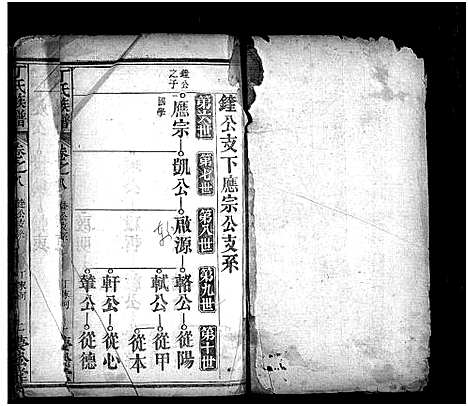 鍷公支下應宗公支系
第六世
第七世
第八世
第九世
第十世
鍷公之子
應宗
國學
凱公
啟源
輅公
從陽
軾公
從甲
從本
軒公
從心
肇公
從德
丁氏族譜
卷之八